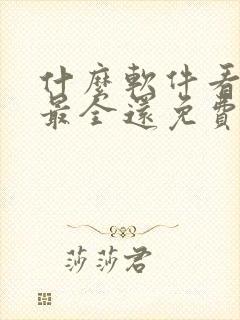 什麼軟件看
最全還免費
莎莎君